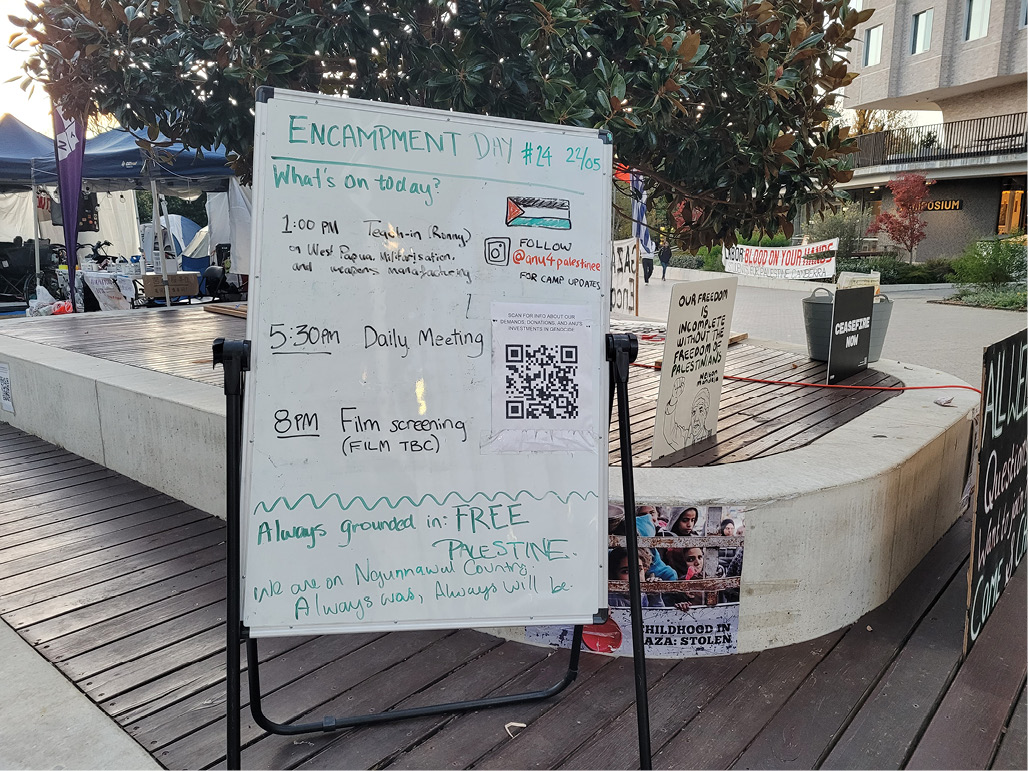 ENCAMPMENT DAY #24 22/05
What's on today?
1:00 PM Teach-in (Ronny)
on West Papua, Militarisation,
and weapons manufacturing
FOLLOW
@anu4palestinee
FOR CAMP UPDATES
5:30PM Daily Meeting
SCAN FOR INFO ABOUT OUR
DEMANDS, DONATIONS, AND ANU'S
INVESTMENTS IN GENOCIDE
8PM Film screening
(FILM TBC)
Always grounded in: FREE
PALESTINE.
We are on Ngunnawul Country.
Always was, Always will be
OUR FREEDOM
IS
INCOMPLETE
WITHOUT THE
FREEDOM OF
PALESTINIANS
NELSON
MANDELA
LABOR BLOOD ON YOUR HANDS
FOR PALESTINE CANBERRA
CEASEFIRE
NOW
CHILDHOOD IN
GAZA: STOLEN